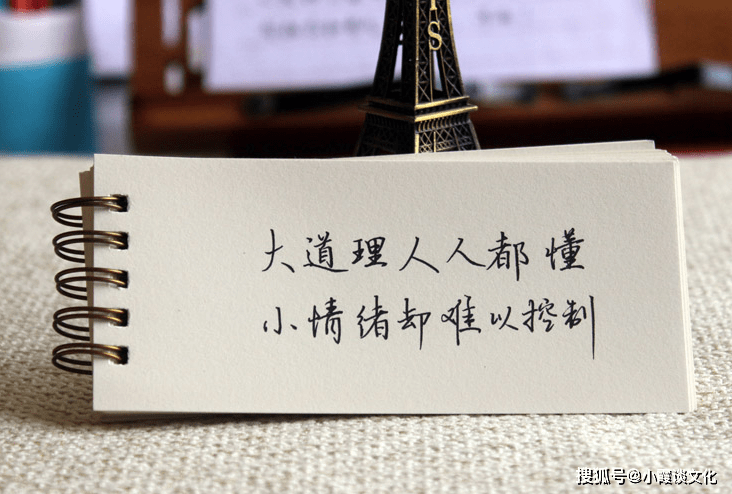 IS
大道理人人都懂
小情绪却难以控制
搜狐号@小霞谈文化